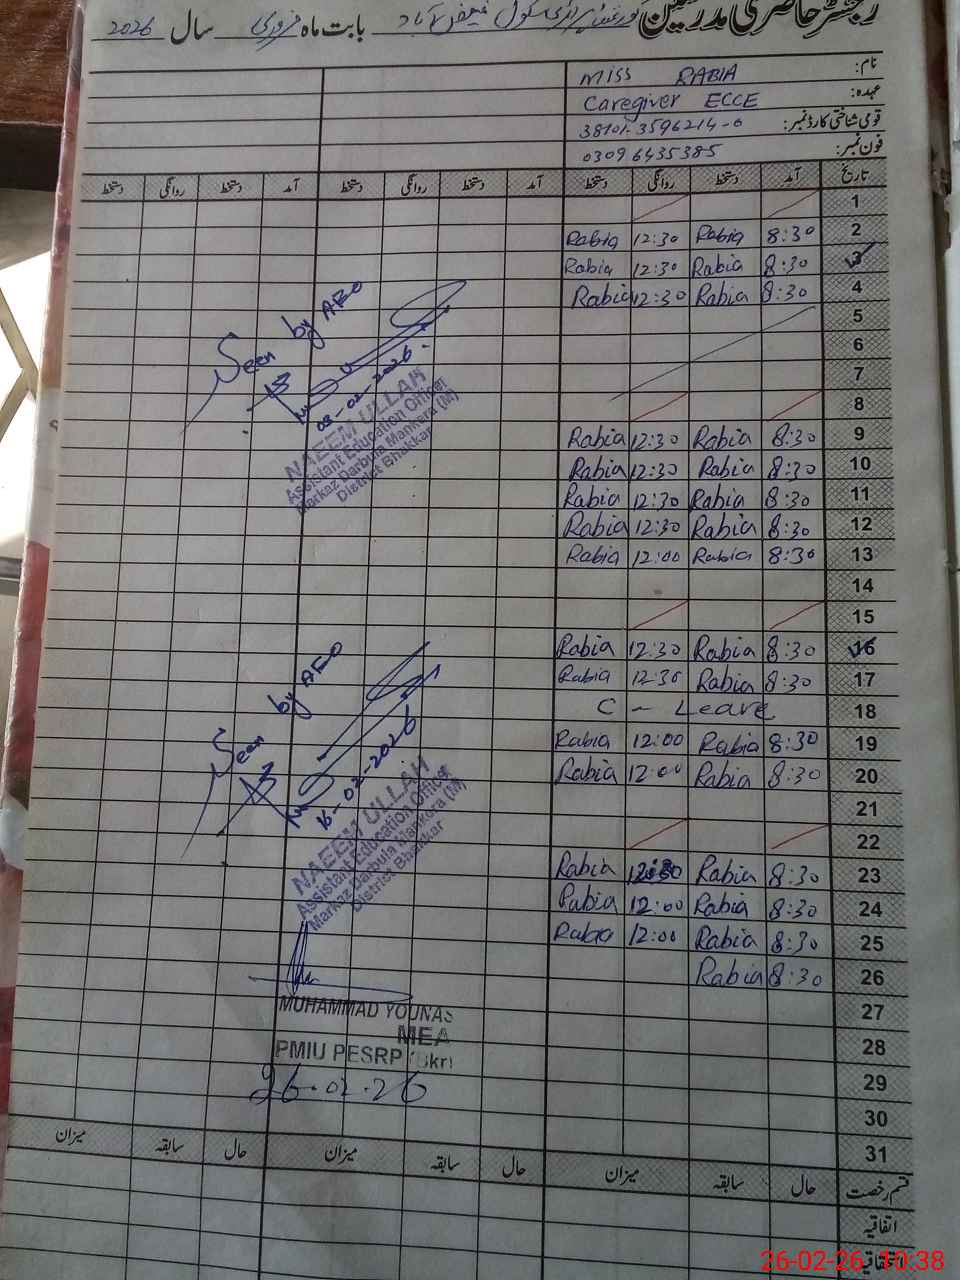 رجسٹر حاضری مدرسین گورنمنٹ پرائمری سکول فیض آباد بابت ماہ فروری سال 2026
نام: Miss RABIA
عہدہ: Caregiver ECCE
قومی شناختی کارڈ نمبر: 38101-3596214-0
فون نمبر: 03096435385
تاریخ آمد دستخط روانگی دستخط آمد دستخط روانگی دستخط آمد دستخط روانگی دستخط
1
2 8:30 Rabia 12:30 Rabia
3 8:30 Rabia 12:30 Rabia
4 8:30 Rabia 12:30 Rabia
5
6
7
8
9 8:30 Rabia 12:30 Rabia
10 8:30 Rabia 12:30 Rabia
11 8:30 Rabia 12:30 Rabia
12 8:30 Rabia 12:30 Rabia
13 8:30 Rabia 12:00 Rabia
14
15
16 8:30 Rabia 12:30 Rabia
17 8:30 Rabia 12:30 Rabia
18 C - Leave
19 8:30 Rabia 12:00 Rabia
20 8:30 Rabia 12:00 Rabia
21
22
23 8:30 Rabia Rabia
24 8:30 Rabia 12:00 Rabia
25 8:30 Rabia 12:00 Rabia
26 8:30 Rabia
27
28
29
30
31
Seen by AEO
03-02-2026
NAEEM ULLAH
Assistant Education Officer
Markaz Darbula Mankera (M)
District Bhakkar
Seen by AEO
16-02-2026
NAEEM ULLAH
Assistant Education Officer
Markaz Darbula Mankera (M)
District Bhakkar
MUHAMMAD YOUNAS
MEA
PMIU PESRP (Bkr)
26.02.26
قسم رخصت حال سابقہ میزان حال سابقہ میزان حال سابقہ میزان
اتفاقیہ
26-02-26 10:38